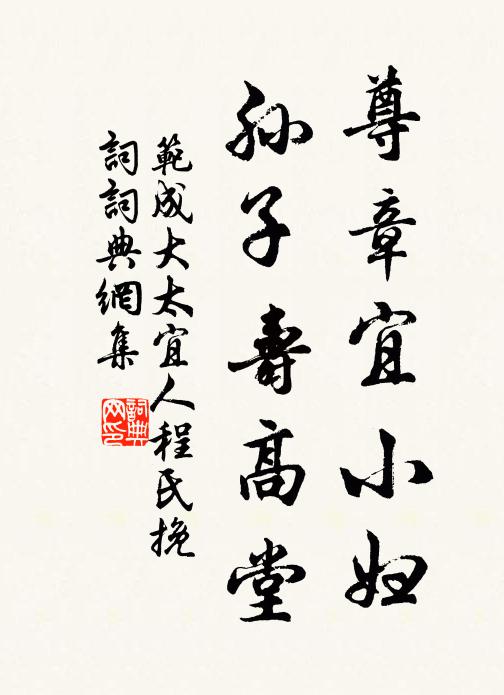 尊章宜小妇
孙子寿高堂
範成大太宜人程氏挽
詞詞典網集
詞典
网印